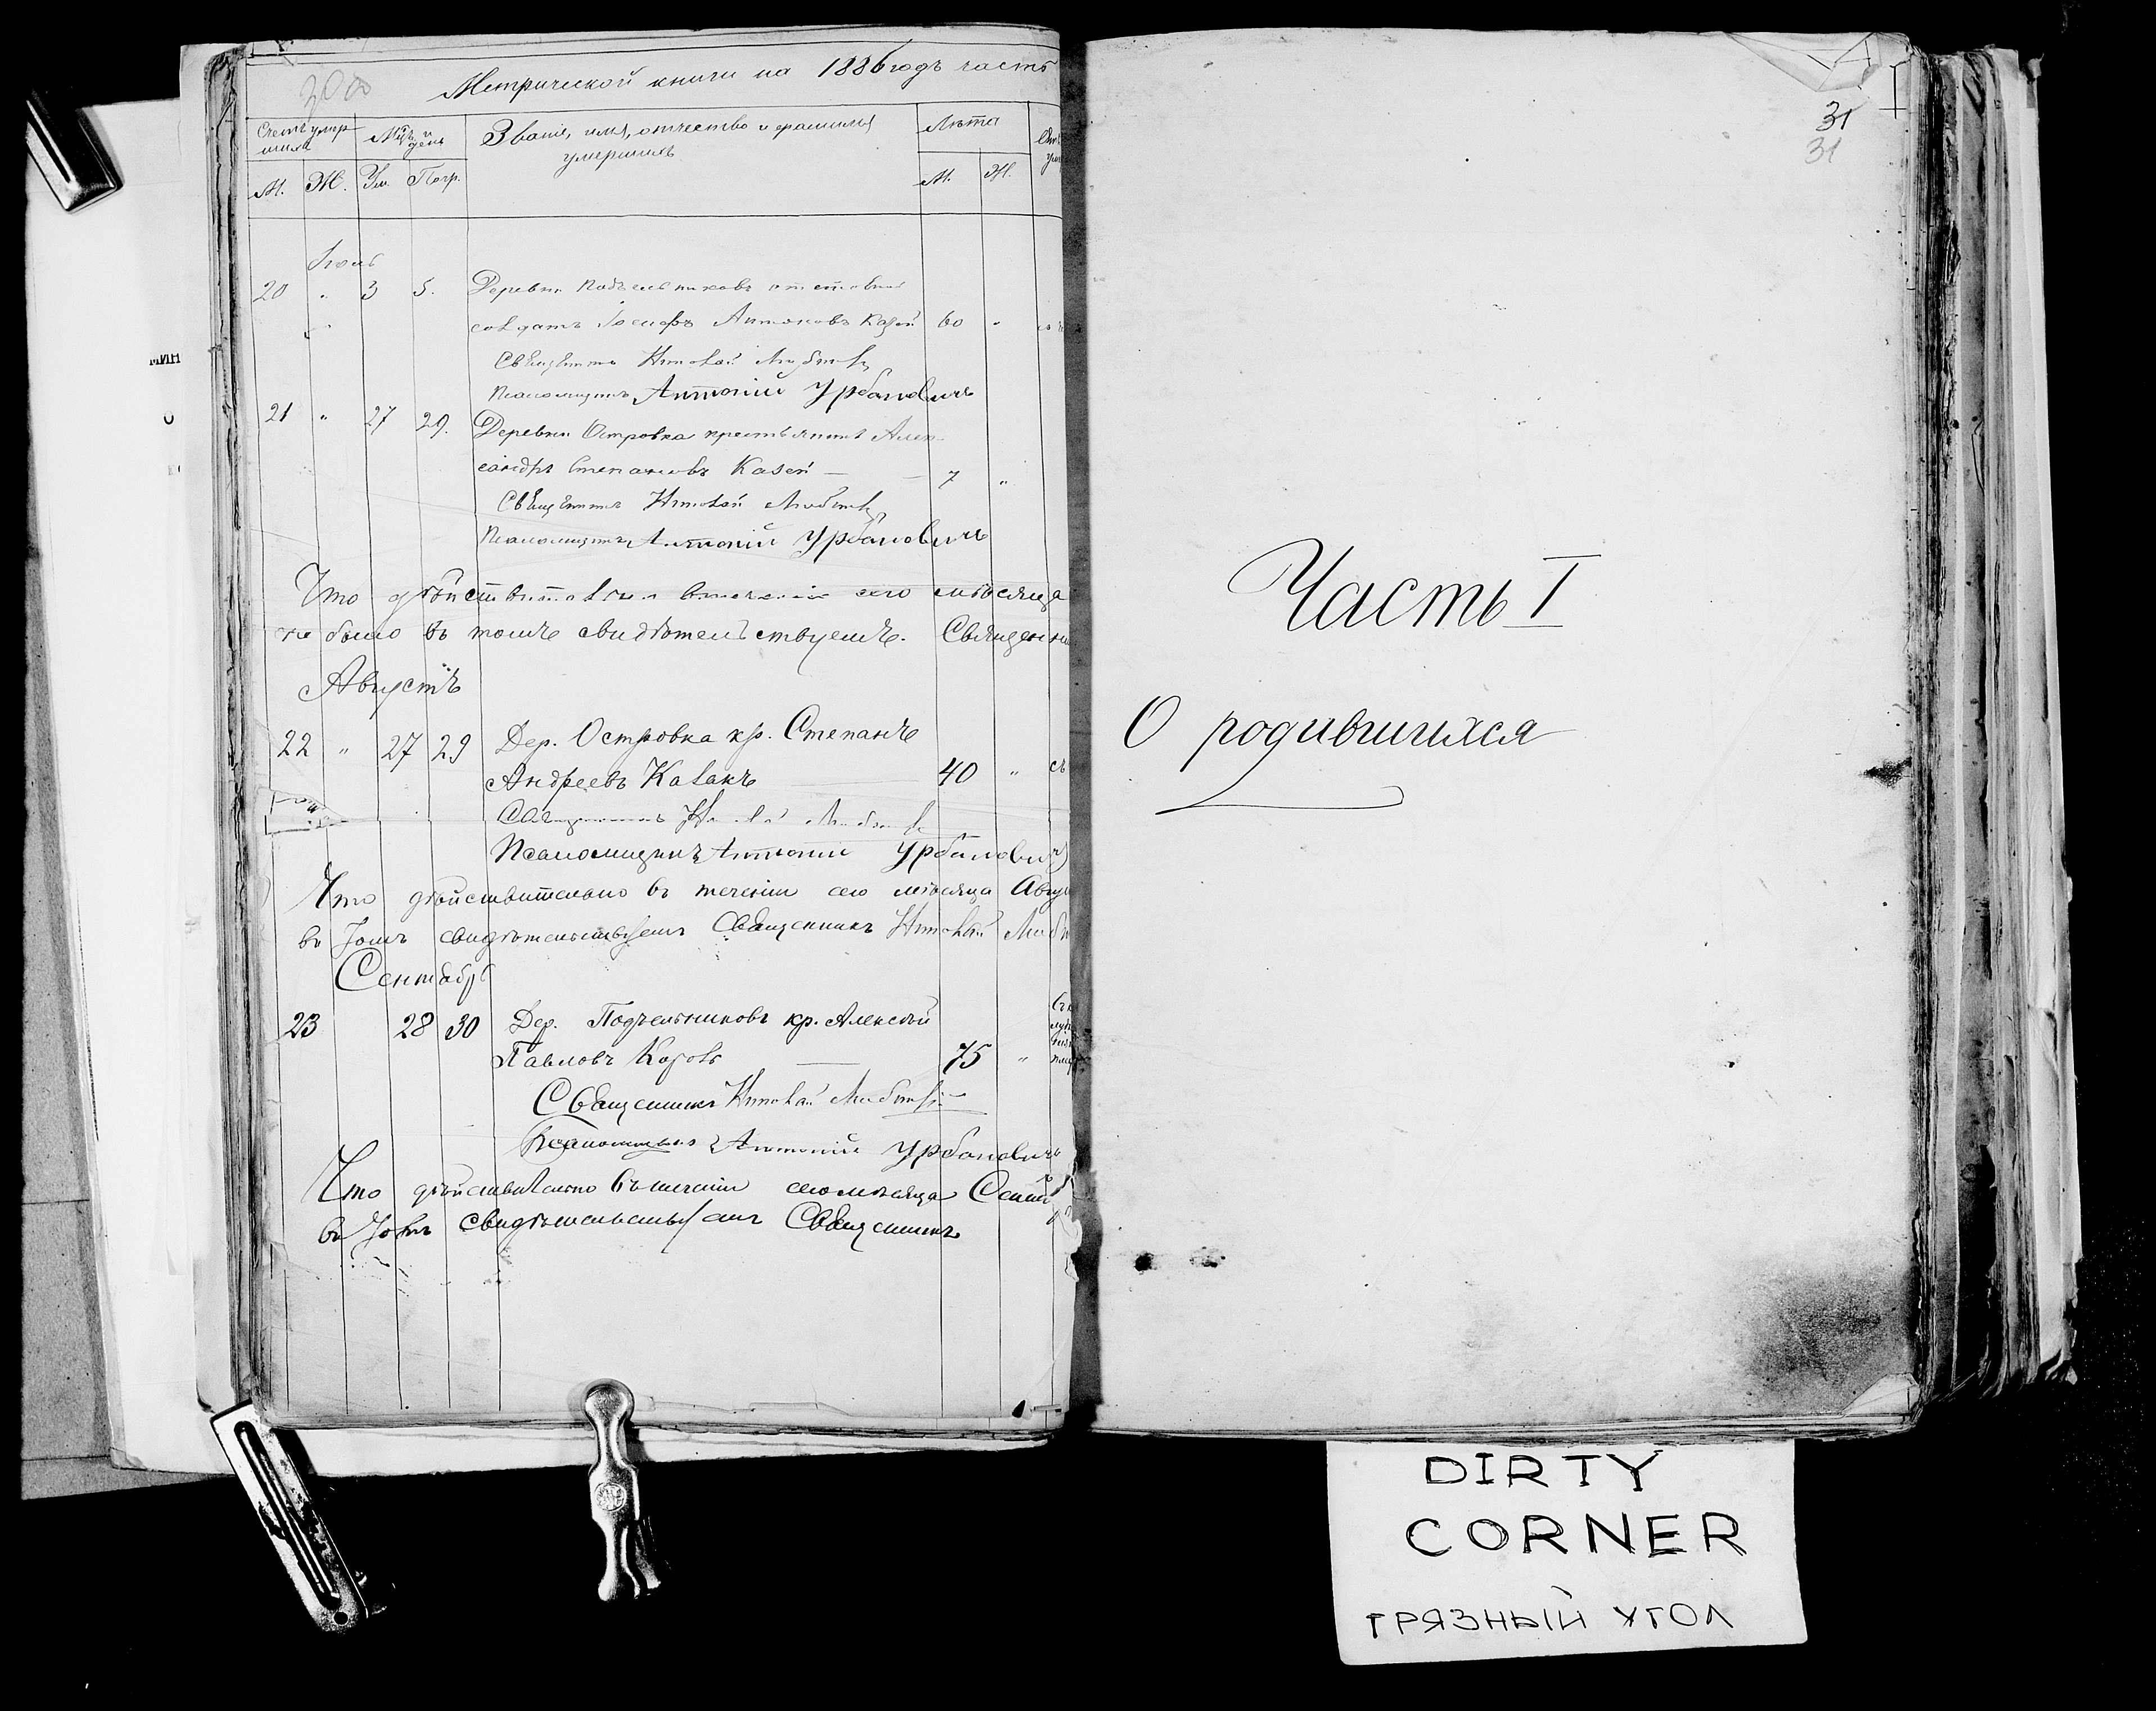 30об
Метрической книги на 1886 годъ часть
Счетъ умершихъ
Мѣц. и день
Званіе, имя, отчество и фамилія умершихъ
Лѣта
М. Ж. Ум. Погр. М. Ж.
Іюль
20 " 3 5. Деревни Подъельниковъ отставной
солдатъ Іосифъ Антоновъ 60 "
Священникъ
Псаломщикъ Антоній Урбановичъ
21 " 27 29. Деревни Островка крестьянинъ Алек-
сандръ Степановъ Казей 7 "
Священникъ
Псаломщикъ Антоній Урбановичъ
Что дѣйствительно втеченіи сего мѣсяца
не было въ томъ свидѣтельствуемъ. Священни
Августъ
22 " 27 29 Дер. Островка кр. Степанъ
Андреевъ 40 " съ
Священникъ
Псаломщикъ Антоній Урбановичъ
Что дѣйствительно въ теченіи сего мѣсяца Авгу
въ томъ свидѣтельствуемъ Священникъ
Сентябрь
23 28 30 Дер. Подъельниковъ кр. Алексѣй
Павловъ 75 "
Священникъ
Псаломщикъ Антоній Урбановичъ
Что дѣйствительно въ теченіи сего мѣсяца Сентя
въ томъ свидѣтельствуемъ Священникъ
31
31
Часть I
О родившихся
DIRTY
CORNER
ГРЯЗНЫЙ УГОЛ